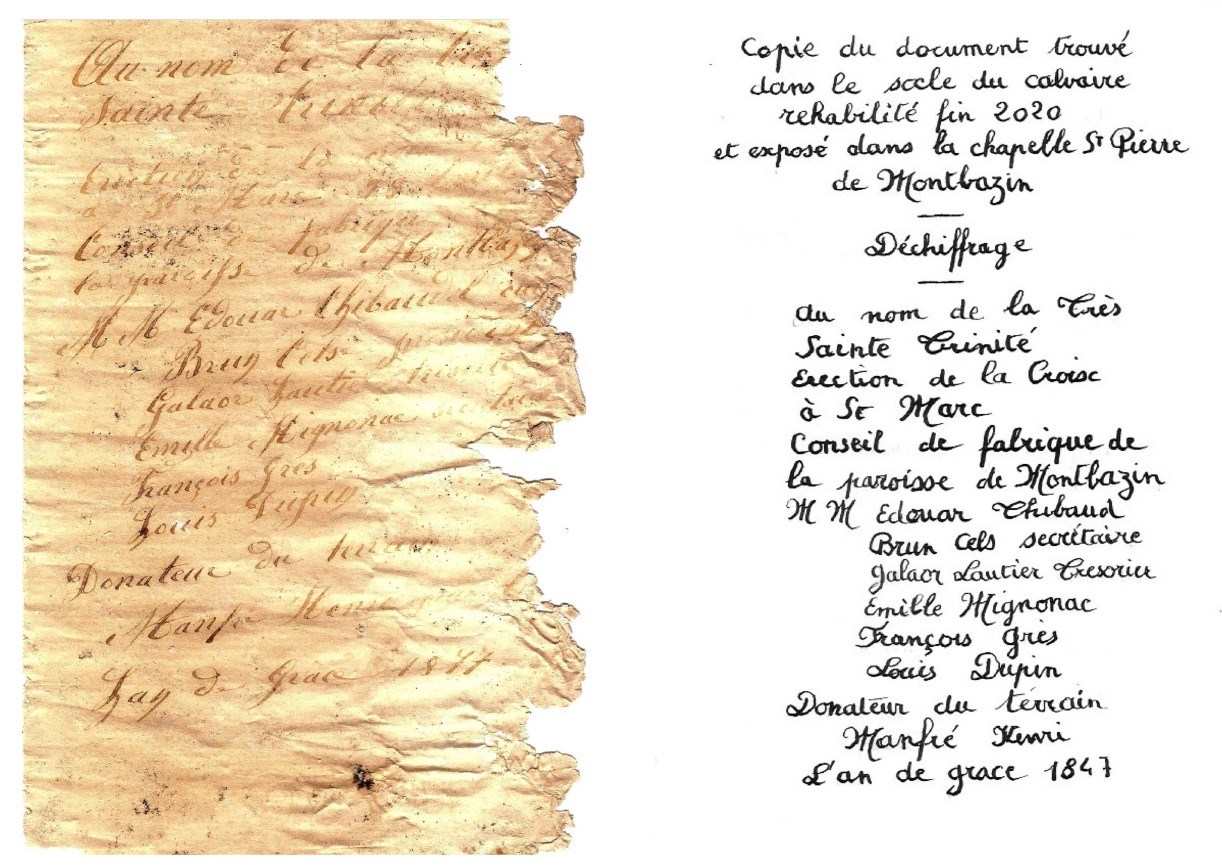 Au nom de la
Sainte Trinité
Erection de la
a St Marc
Conseil de fabrique
la paroisse de Montbaz
M M Edouar Thibaud
Brun Cels
Galaor Lautier
Emille Mignonac
François Gres
Louis Dupin
Donateur du terrain
Manfre Henri
Lan de Grace 1877
Copie du document trouvé
dans le socle du calvaire
rehabilité fin 2020
et exposé dans la chapelle St Pierre
de Montbazin
Déchiffrage
Au nom de la Très
Sainte Trinité
Erection de la Croisc
à St Marc
Conseil de fabrique de
la paroisse de Montbazin
M M Edouar Thibaud
Brun Cels secrétaire
Galaor Lautier Tresorier
Emille Mignonac
François Grès
Louis Dupin
Donateur du terrain
Manfré Henri
L'an de grace 1847